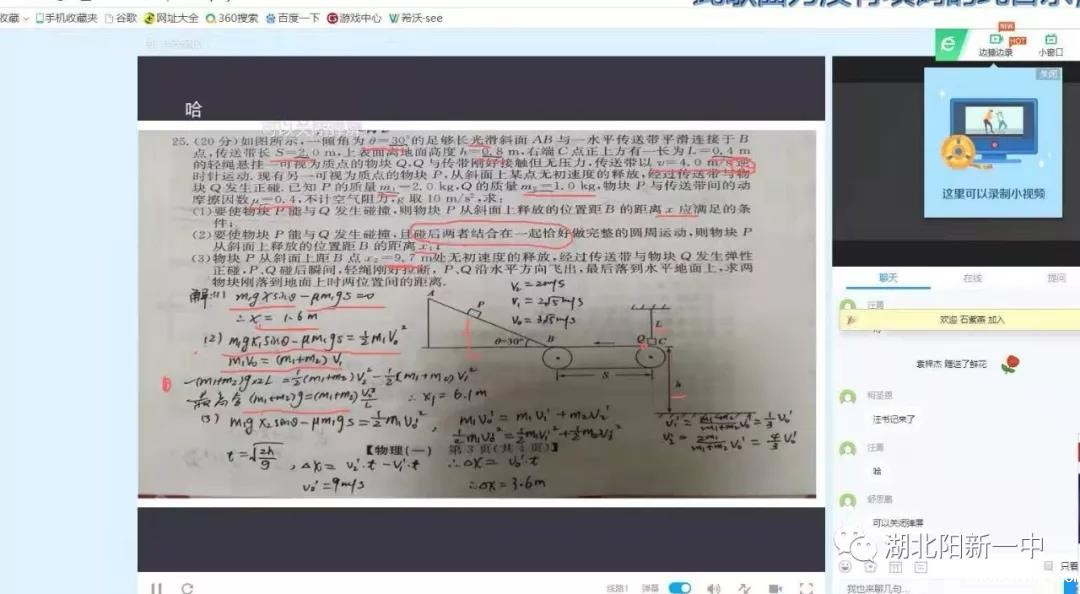 收藏 手机收藏夹 谷歌 网址大全 360搜索 百度一下 游戏中心 希沃-see
NEW
HOT
边播边录 小窗口
关闭
这里可以录制小视频
哈
25.(20分)如图所示,一倾角为θ=30°的足够长光滑斜面AB与一水平传送带平滑连接于B
点,传送带长S=2.0m,上表面离地面高度h=0.8m,右端C点正上方有一长为L=0.4m
的轻绳悬挂一可视为质点的物块Q,Q与传带刚好接触但无压力,传送带以v=4.0m/s逆
时针运动.现有另一可视为质点的物块P,从斜面上某点无初速度的释放,经过传送带与物
块Q发生正碰.已知P的质量m₁=2.0kg,Q的质量m₂=1.0kg,物块P与传送带间的动
摩擦因数μ=0.4,不计空气阻力,g取10m/s²,求:
(1)要使物块P能与Q发生碰撞,则物块P从斜面上释放的位置距B的距离x应满足的条
件;
(2)要使物块P能与Q发生碰撞,且碰后两者结合在一起恰好做完整的圆周运动,则物块P
从斜面上释放的位置距B的距离x₁;
(3)物块P从斜面上距B点x₂=9.7m处无初速度的释放,经过传送带与物块Q发生弹性
正碰,P、Q碰后瞬间,轻绳刚好拉断,P、Q沿水平方向飞出,最后落到水平地面上,求两
物块刚落到地面上时两位置间的距离.
解:(1) m₁gxsinθ-μm₁gs=0
∴x=1.6m
(2) m₁gx₁sinθ-μm₁gs=½m₁V₀²
m₁V₀=(m₁+m₂)V₁
-(m₁+m₂)g×2L=½(m₁+m₂)V₂²-½(m₁+m₂)V₁²
最高点 (m₁+m₂)g=(m₁+m₂)V₂²/L ∴x₁=6.1m
(3) m₁gx₂sinθ-μm₁gs=½m₁V₀'², m₁V₀'=m₁V₁'+m₂V₂'
½m₁V₀'²=½m₁V₁'²+½m₂V₂'²
V₂=2m/s
V₁=2√5m/s
V₀=3√5m/s
A
P
θ=30°
B
L
Q
C
S
h
【物理(一) 第3页(共4页)】
t=√(2h/g), Δx=V₂'·t-V₁'·t ∴Δx=V₀'·t
V₀'=9m/s ∴Δx=3.6m
聊天 在线 提问
欢迎 石紫燕 加入
袁梓杰 赠送了鲜花
汪书记来了
汪勇
哈
可以关闭弹屏
线路1 弹幕
只看
我也来聊几句...
湖北阳新一中